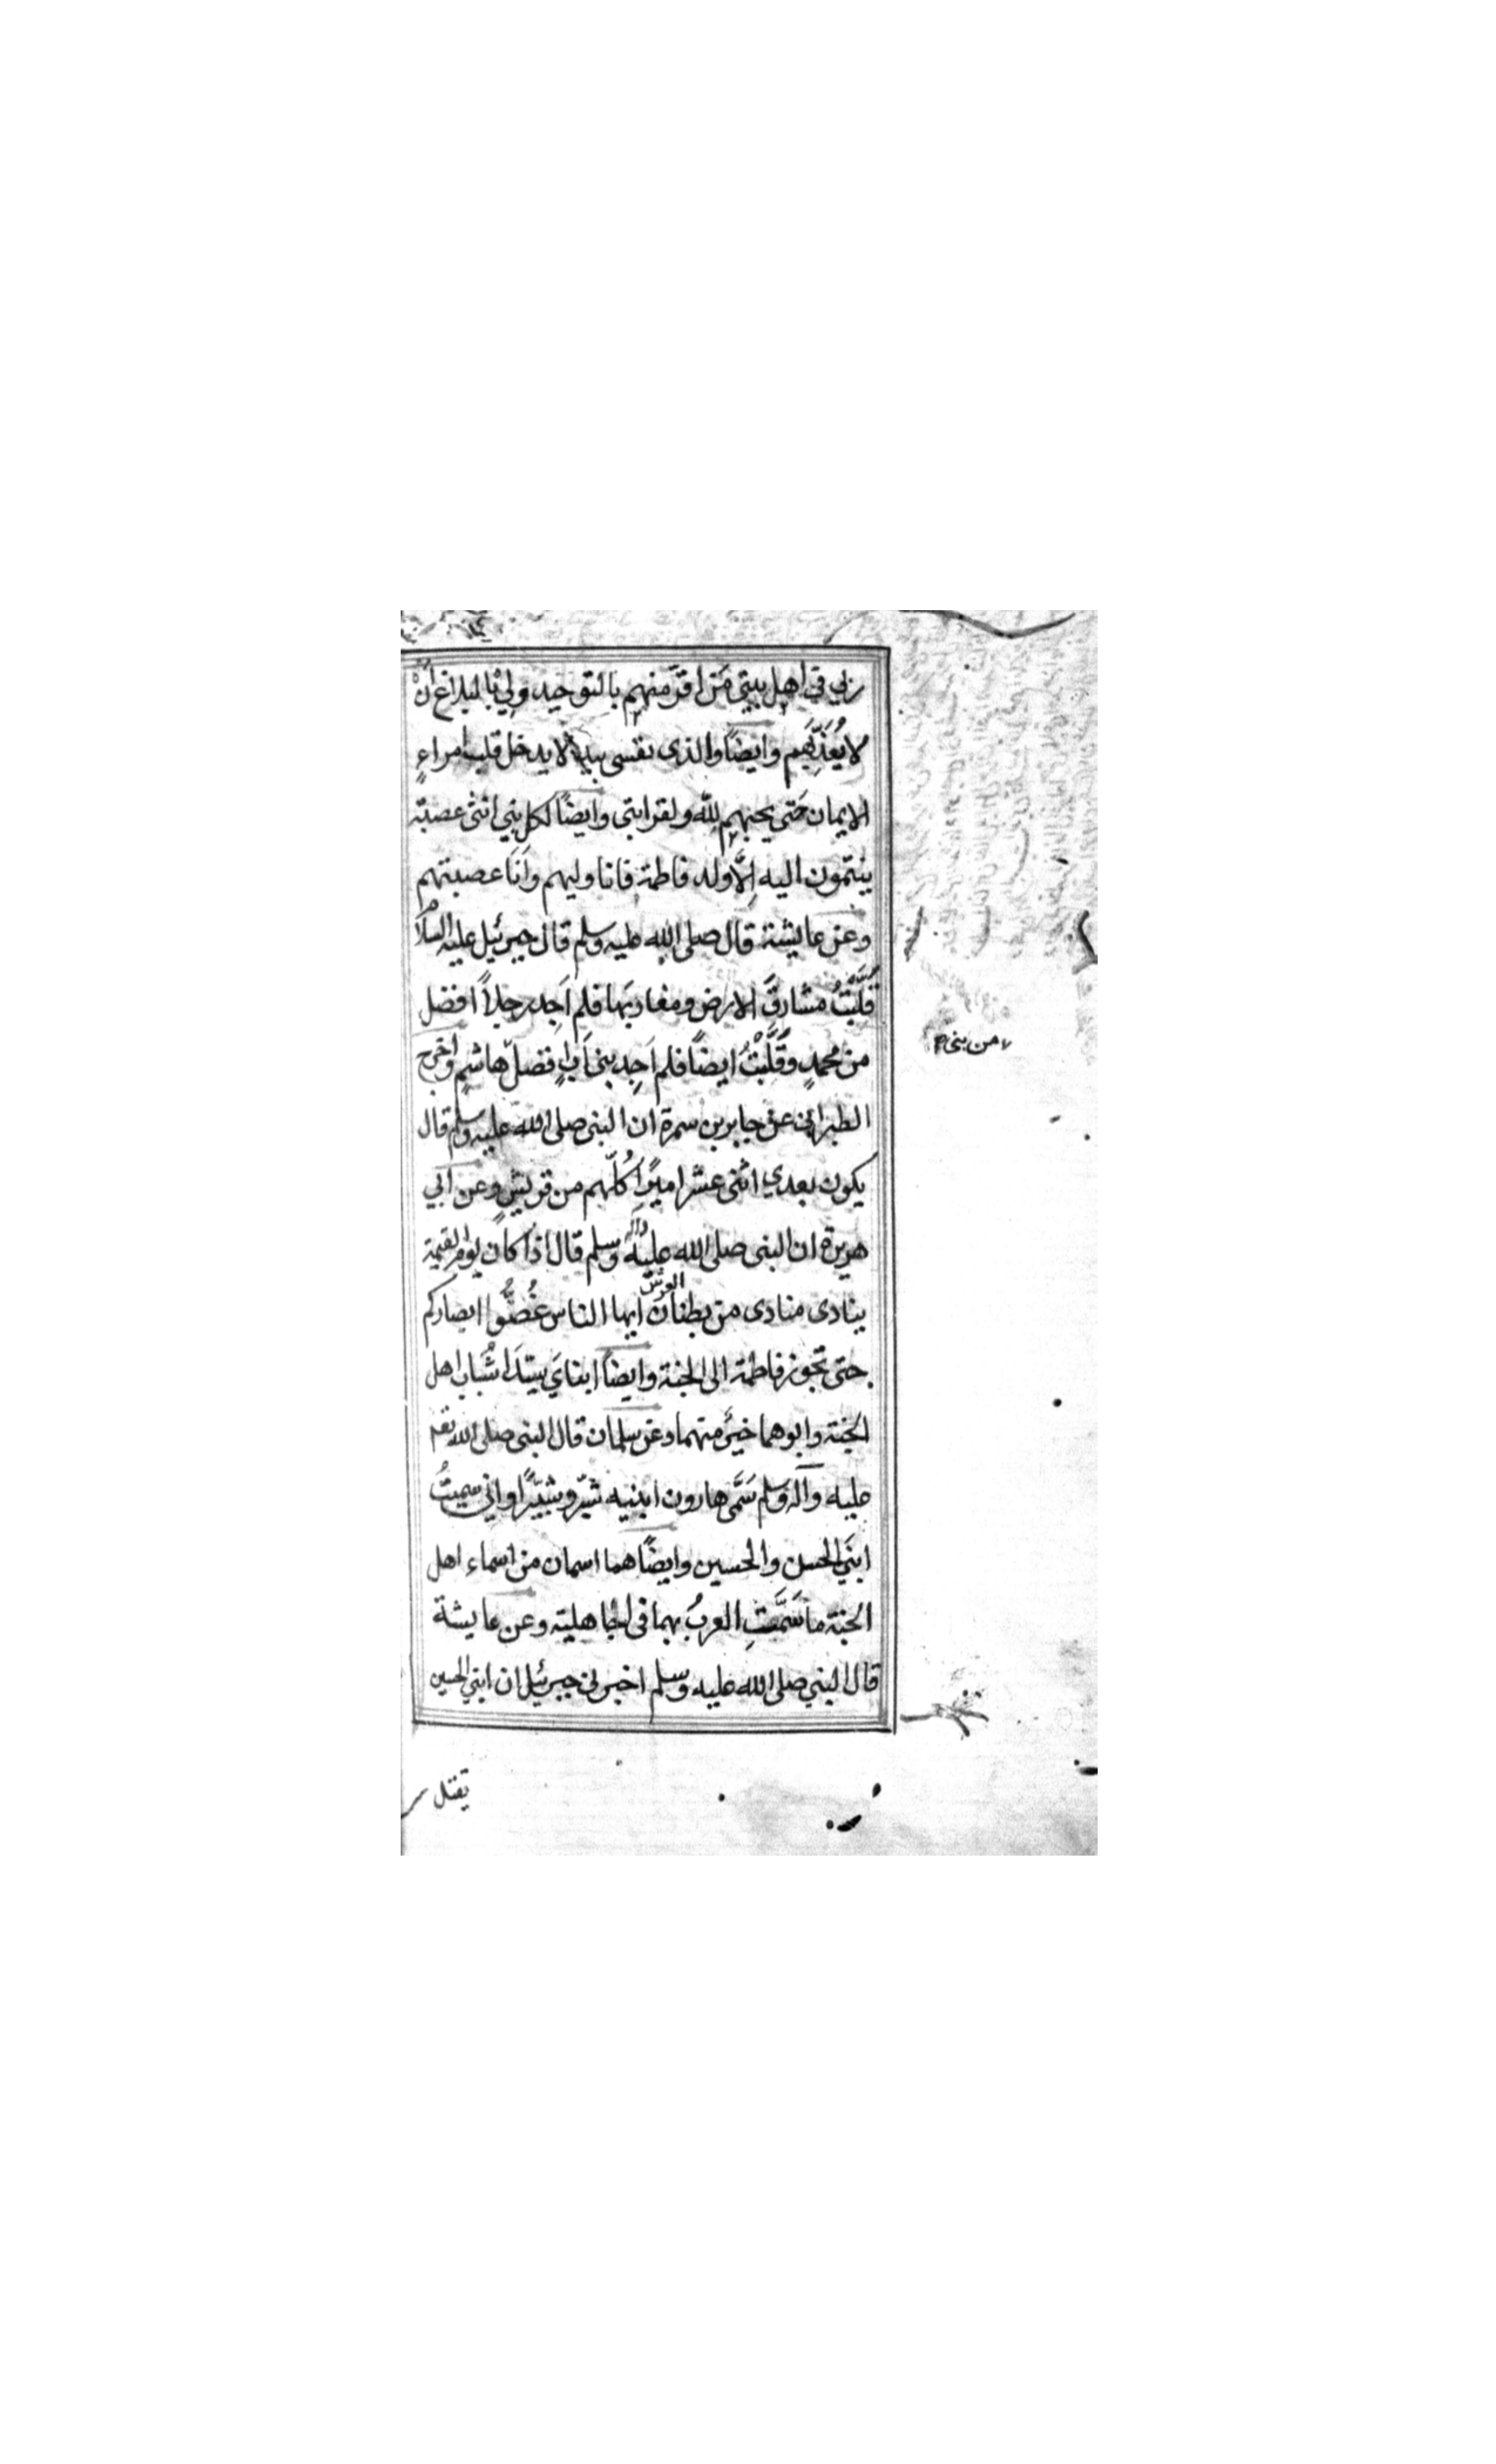 ربي في اهل بيتي مَن اقرّ منهم بالتوحيد ولِيْ بالبلاغ أَنْ
لا يُعَذِّبَهم وايضًا والذى نفسى بيده لا يدخل قلب امراءٍ
الايمان حَتى يحبهم لِلّه ولقرابتى وايضًا لكل بني انثى عصبة
ينتمون اليه اِلَّا ولد فاطمة فانا وليهم وأَنَا عصبتهم
وعن عايشة قال صلى الله عليه وسلم قال جبرئيل عليه السلام
قَلَّبْتُ مشارقَ الارض ومغاربَها فلم اَجِد رجلاً افضل
من محمدٍ وقَلَّبْتُ ايضًا فلم اَجِد بنى اَبٍ افضل هاشمٍ واخرج
من بنى
الطبرانى عن جابر بن سمرة ان النبى صلى الله عليه وسلم قال
يكون بعدي اثنى عشر اميرًا كُلّهم من قريشٍ وعن ابي
هريرة ان النبى صلى الله عليه وآله وسلم قال اذا كان يوم القيمة
ينادى منادى من بطنان العرش ايها الناس غُضُّوا ابصاركم
حتى تجوز فاطمة الى الجنة وايضًا ابناىَ سيّدَا شُبَاب اهل
الجنة وابوهما خيرٌ منهما وعن سلمان قال النبى صلى الله
عليه وآله وسلم سَمَّى هارون ابنيه شبّر وشبّيرًا وانى سميتُ
ابنَي الحسن والحسين وايضًا هما اسمان من اسماء اهل
الجنة ما سَمَّتِ العربُ بهما فى الجاهلية وعن عايشة
قال النبي صلى الله عليه وسلم اخبرنى جبرئيل ان ابني الحسين
يقتل